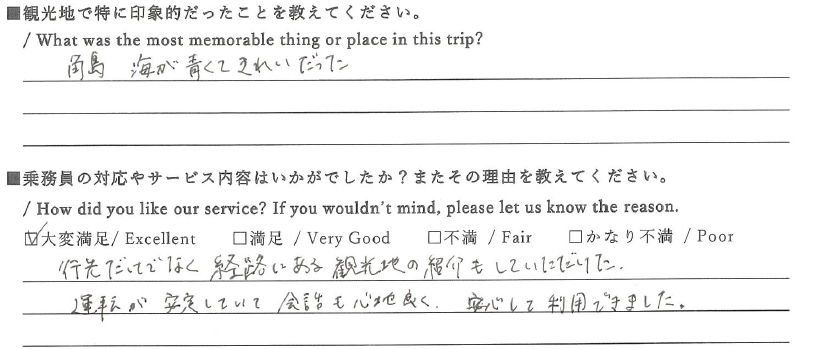 ■観光地で特に印象的だったことを教えてください。
/ What was the most memorable thing or place in this trip?
角島 海が青くてきれいだった
■乗務員の対応やサービス内容はいかがでしたか?またその理由を教えてください。
/ How did you like our service? If you wouldn't mind, please let us know the reason.
☑大変満足/ Excellent □満足 / Very Good □不満 / Fair □かなり不満 / Poor
行先だけでなく 経路にある観光地の紹介もしていただけた.
運転が安定していて 会話も心地良く. 安心して利用できました。